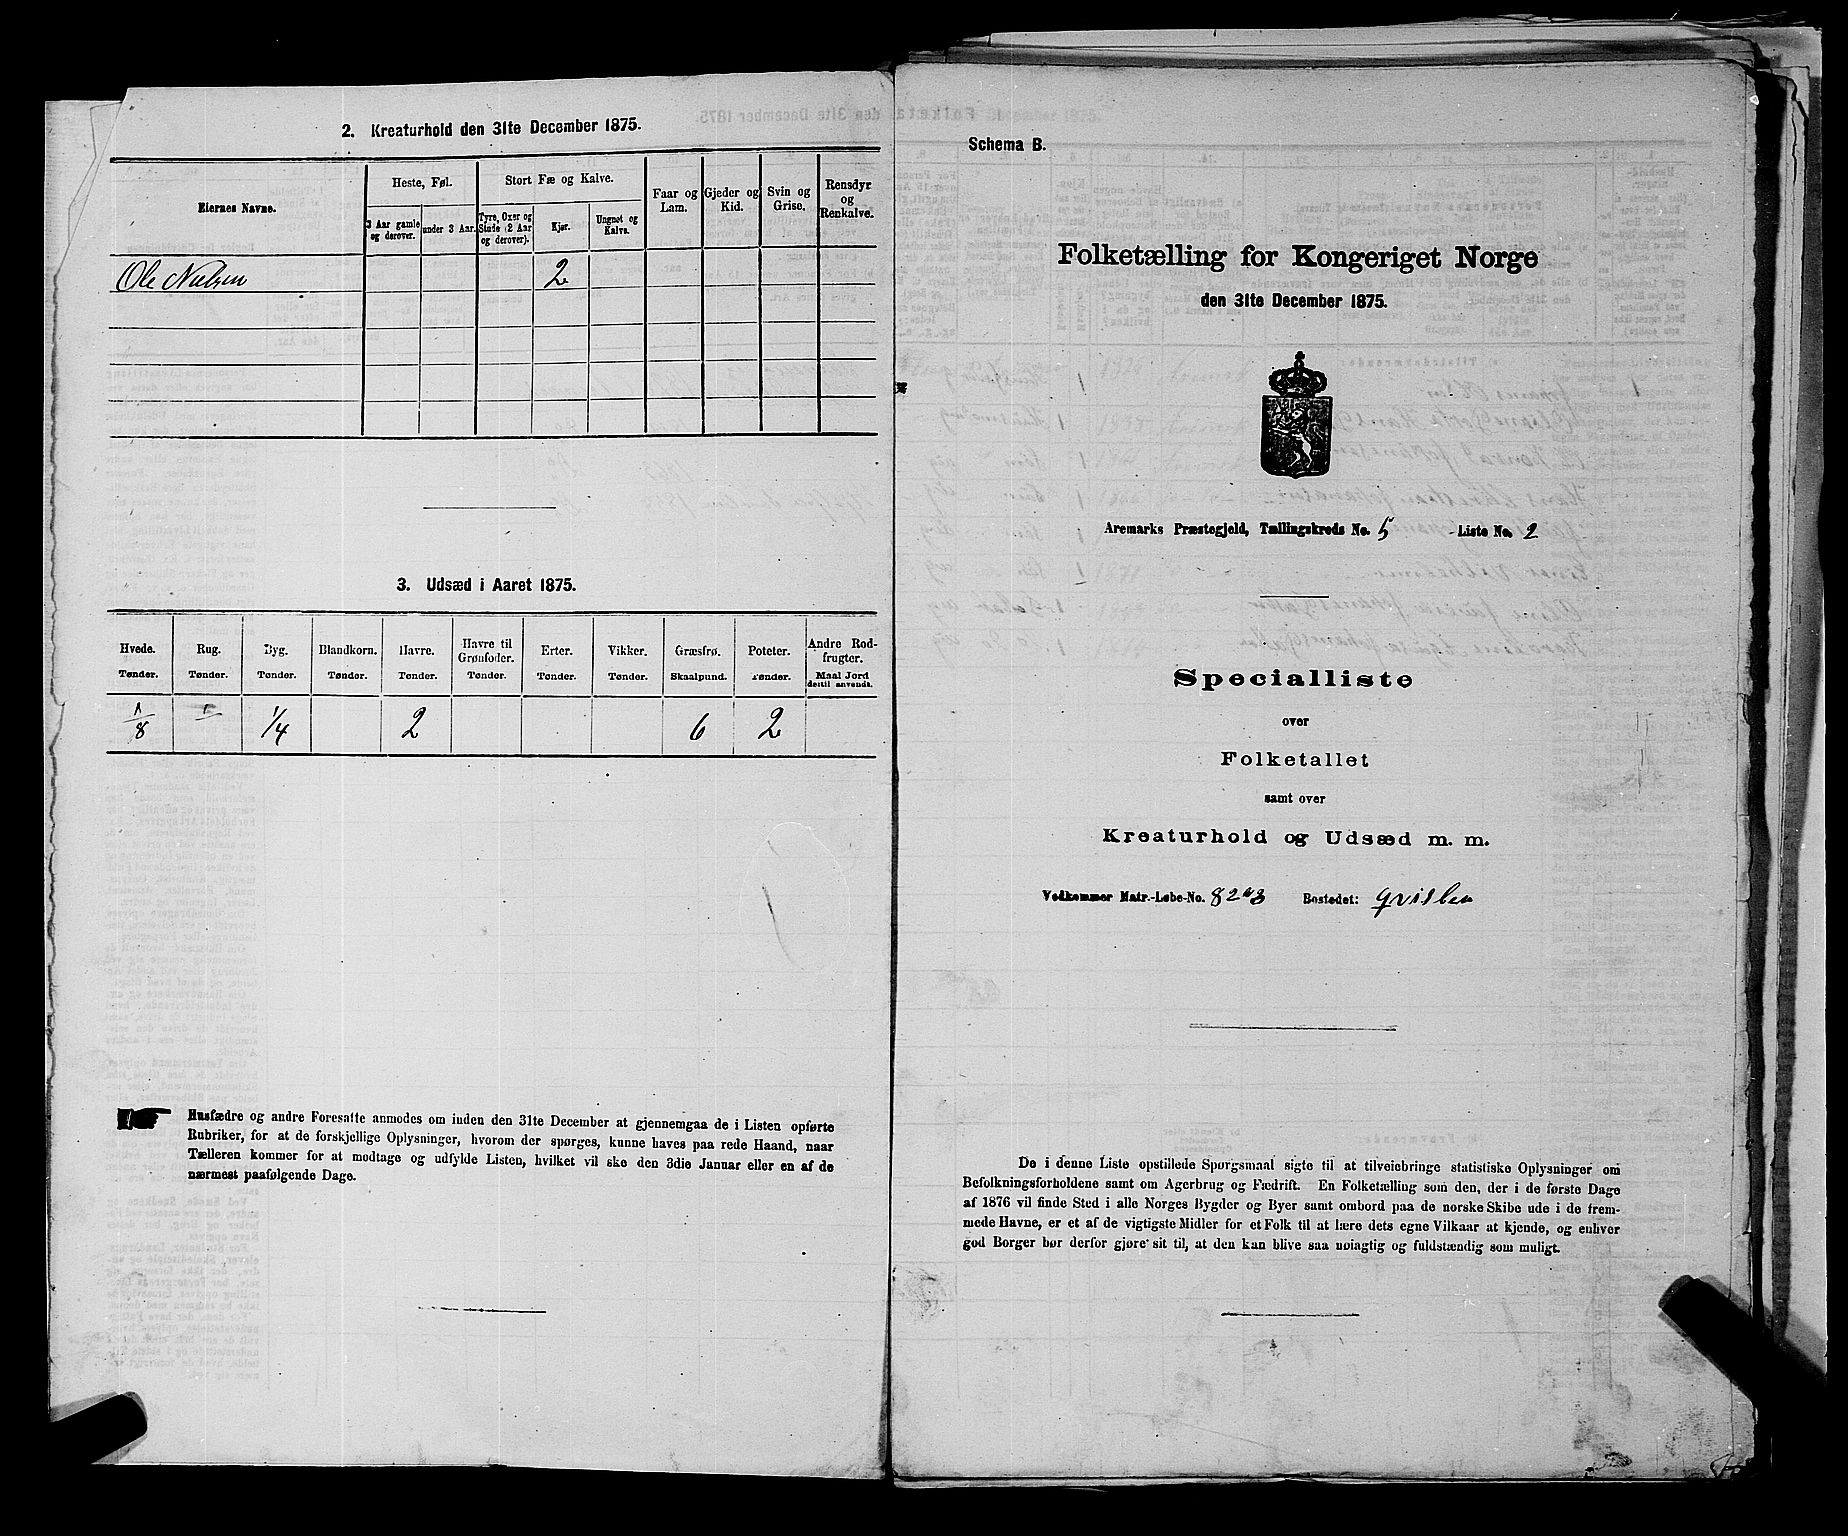 2. Kreaturhold den 31te December 1875.
Eiernes Navne.
Heste, Føl.
3 Aar gamle og derover.
under 3 Aar.
Stort Fæ og Kalve.
Tyre, Oxer og Stude (2 Aar og derover).
Kjør.
Ungnøt og Kalve.
Faar og Lam.
Gjeder og Kid.
Svin og Grise.
Rensdyr og Renkalve.
Ole Nielsen 2
3. Udsæd i Aaret 1875.
Hvede. Rug. Byg. Blandkorn. Havre. Havre til Grønfoder. Erter. Vikker. Græsfrø. Poteter. Andre Rodfrugter.
Tønder. Tønder. Tønder. Tønder. Tønder. Tønder. Tønder. Tønder. Skaalpund. Tønder. Maal Jord dertil anvendt.
1/8 1/4 2 6 2
Husfædre og andre Foresatte anmodes om inden den 31te December at gjennemgaa de i Listen opførte
Rubriker, for at de forskjellige Oplysninger, hvorom der spørges, kunne haves paa rede Haand, naar
Tælleren kommer for at modtage og udfylde Listen, hvilket vil ske den 3die Januar eller en af de
nærmest paafølgende Dage.
Schema B.
Folketælling for Kongeriget Norge
den 31te December 1875.
Aremarks Præstegjeld, Tællingskreds No. 5 Liste No. 2
Specialliste
over
Folketallet
samt over
Kreaturhold og Udsæd m. m.
Vedkommer Matr.-Løbe-No. 82 Bostedet:
De i denne Liste opstillede Spørgsmaal sigte til at tilveiebringe statistiske Oplysninger om
Befolkningsforholdene samt om Agerbrug og Fædrift. En Folketælling som den, der i de første Dage
af 1876 vil finde Sted i alle Norges Bygder og Byer samt ombord paa de norske Skibe ude i de frem-
mede Havne, er et af de vigtigste Midler for et Folk til at lære dets egne Vilkaar at kjende, og enhver
god Borger bør derfor gjøre sit til, at den kan blive saa nøiagtig og fuldstændig som muligt.